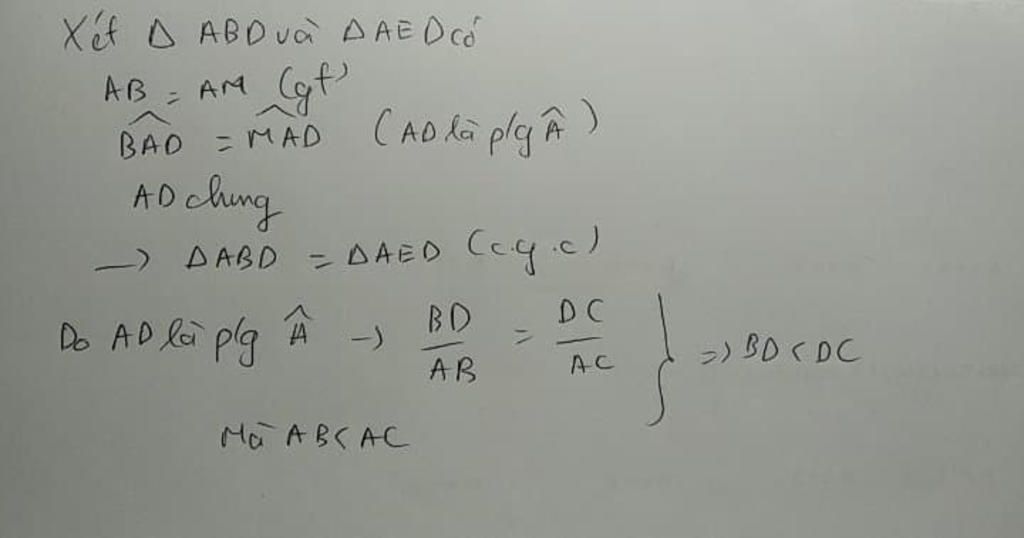 Xét Δ ABD và Δ AED có
AB = AM (gt)
\widehat{BAD} = \widehat{MAD} (AD là p/g \widehat{A})
AD chung
→ Δ ABD = Δ AED (c.g.c)
Do AD là p/g \widehat{A} → \frac{BD}{AB} = \frac{DC}{AC} } => BD < DC
Mà AB < AC